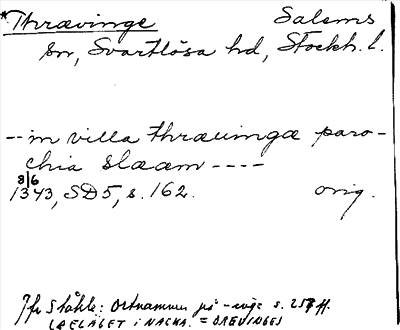 *Thrævinge Salems
sn, Svartlösa hd, Stockh. l.
-- in villa thræuingæ paro-
chia slæam ----
8/6
1343, SD 5, s. 162. orig.
Jfr Ståhle: Ortnamnen på -inge s. 257 ff.
(BELÄGET I NACKA. = DREVINGE)